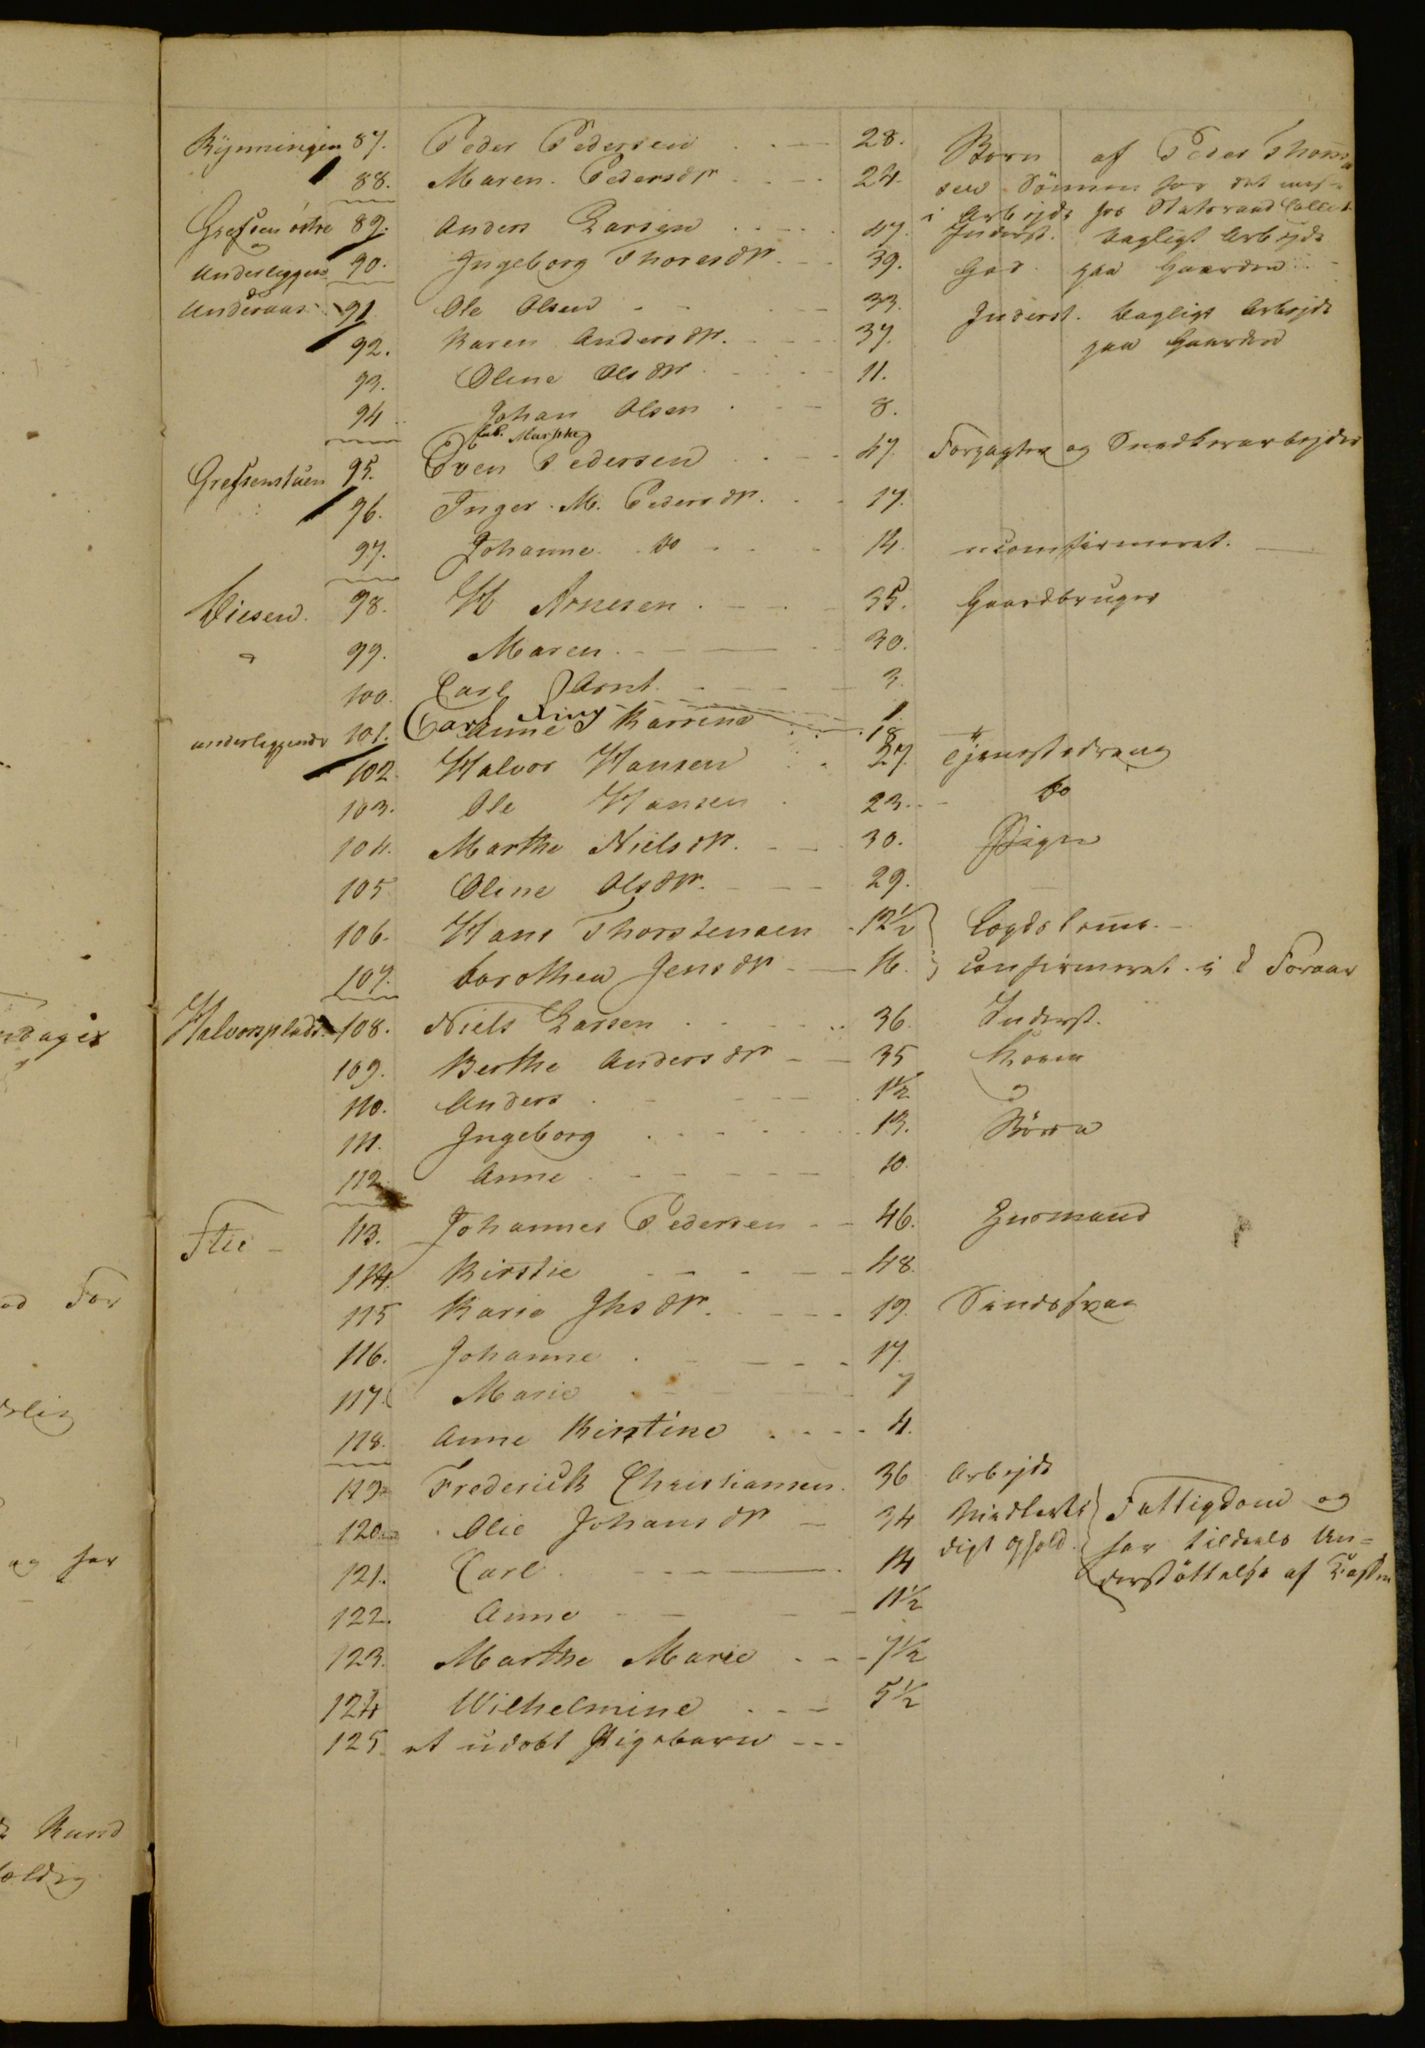 Rÿnningen 87. Peder Pedersen 28. Børn af Peder Thoma
88. Maren Pedersdr 24. sen Sønnen har det mest
Grefsen østre 89. Anders Larsen 47. i Arbejde hos Statsraad Collet
og Inderst. dagligt Arbejde
Underliggend 90. Ingeborg Thoresdr. 39. paa Gaarden
Underaas 91 Ole Olsen 33. Inderst. dagligt Arbejde
92. Karen Andersdr. 37. paa Gaarden
93. Oline Olsdr. 11.
94 Johan Olsen 8.
Grefsenstuen 95. Even Pedersen 47. Forpagter og Snedkerarbejder
96. Inger M. Pedersdr. 17.
97. Johanne do 14. uconfirmeret.
98. H Arnesen 35. Gaardbruger
99. Maren 30.
100. Carl Arnt 3.
Anne Karrine 1
underliggende 101. Carl 18
102. Halvor Hansen 27. Tjenestedreng
103. Ole Hansen 23. do
104. Marthe Nielsdr. 30. Pige
105 Oline Olsdr. 29.
106. Hans Thorstensen 12½ Lægdslem.
107. Dorothea Jensdr 16. confirmeret i d Foraar
Halvorsplads 108. Niels Larsen 36. Inderst.
109. Berthe Andersdr 35 Kone
110. Anders 1½ og
111. Ingeborg 13. Børn
112 Anne 10.
113. Johannes Pedersen 46. Husmand
114. Kirstie 48.
115 Karie Jhsdr. 19. Sindssvag
116. Johanne 17.
117. Marie 7
118. Anne Kirstine 4.
119 Frederick Christiansen 36 Arbejde
120 Olie Johansdr 34 Fattigdom og
121. Carl 14 har tildeels Un=
derstøttelse af Kassen
122. Anne 11½
123. Marthe Marie 7½
124 Wilhelmine 5½
125 et udøbt Pigebarn
ndages
od For
og har
Kund